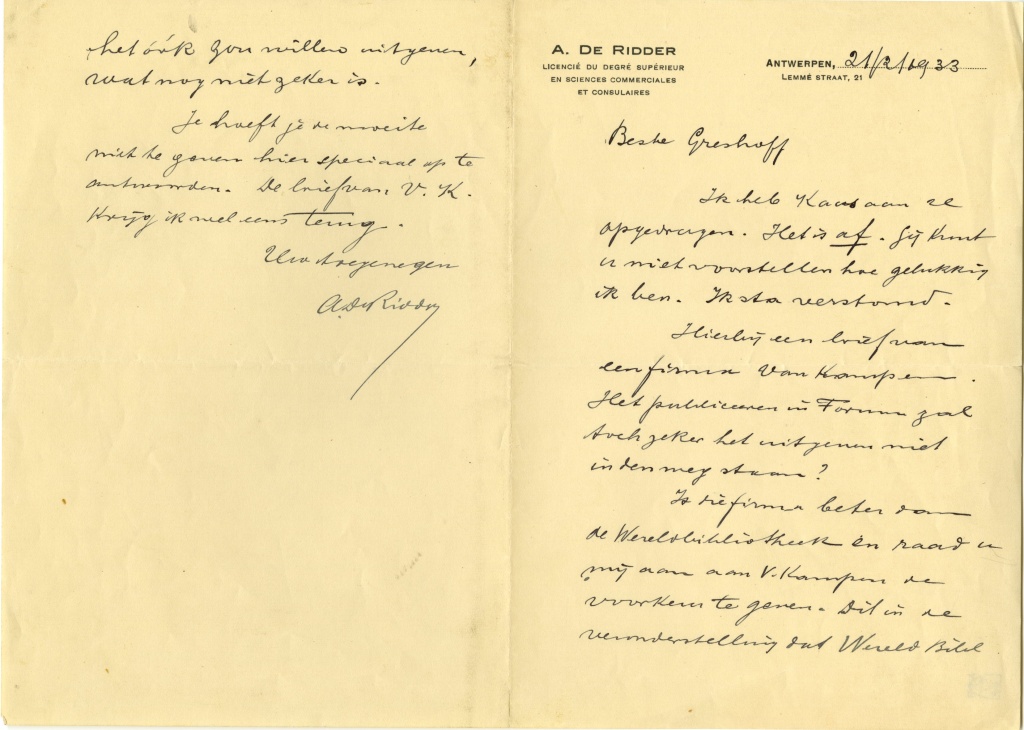 A. DE RIDDER
LICENCIÉ DU DEGRÉ SUPÉRIEUR
EN SCIENCES COMMERCIALES
ET CONSULAIRES
ANTWERPEN, 21/2/1933
LEMMÉ STRAAT, 21
Beste Greshoff
Ik heb Kaas aan U
opgedragen. Het is af. Gij kunt
u niet voorstellen hoe gelukkig
ik ben. Ik sta verstomd.
Hierbij een brief van
een firma Van Kampen.
Het publiceeren in Forum zal
toch zeker het uitgeven niet
in den weg staan?
Is die firma beter dan
de Wereldbibliotheek en raad u
mij aan aan V. Kampen de
voorkeur te geven. Dit in de
veronderstelling dat Wereld Bibl
het óók zou willen uitgeven,
wat nog niet zeker is.
Je hoeft je de moeite
niet te geven hier speciaal op te
antwoorden. De brief van V. K.
krijg ik wel eens terug.
Uw toegenegen
A. De Ridder